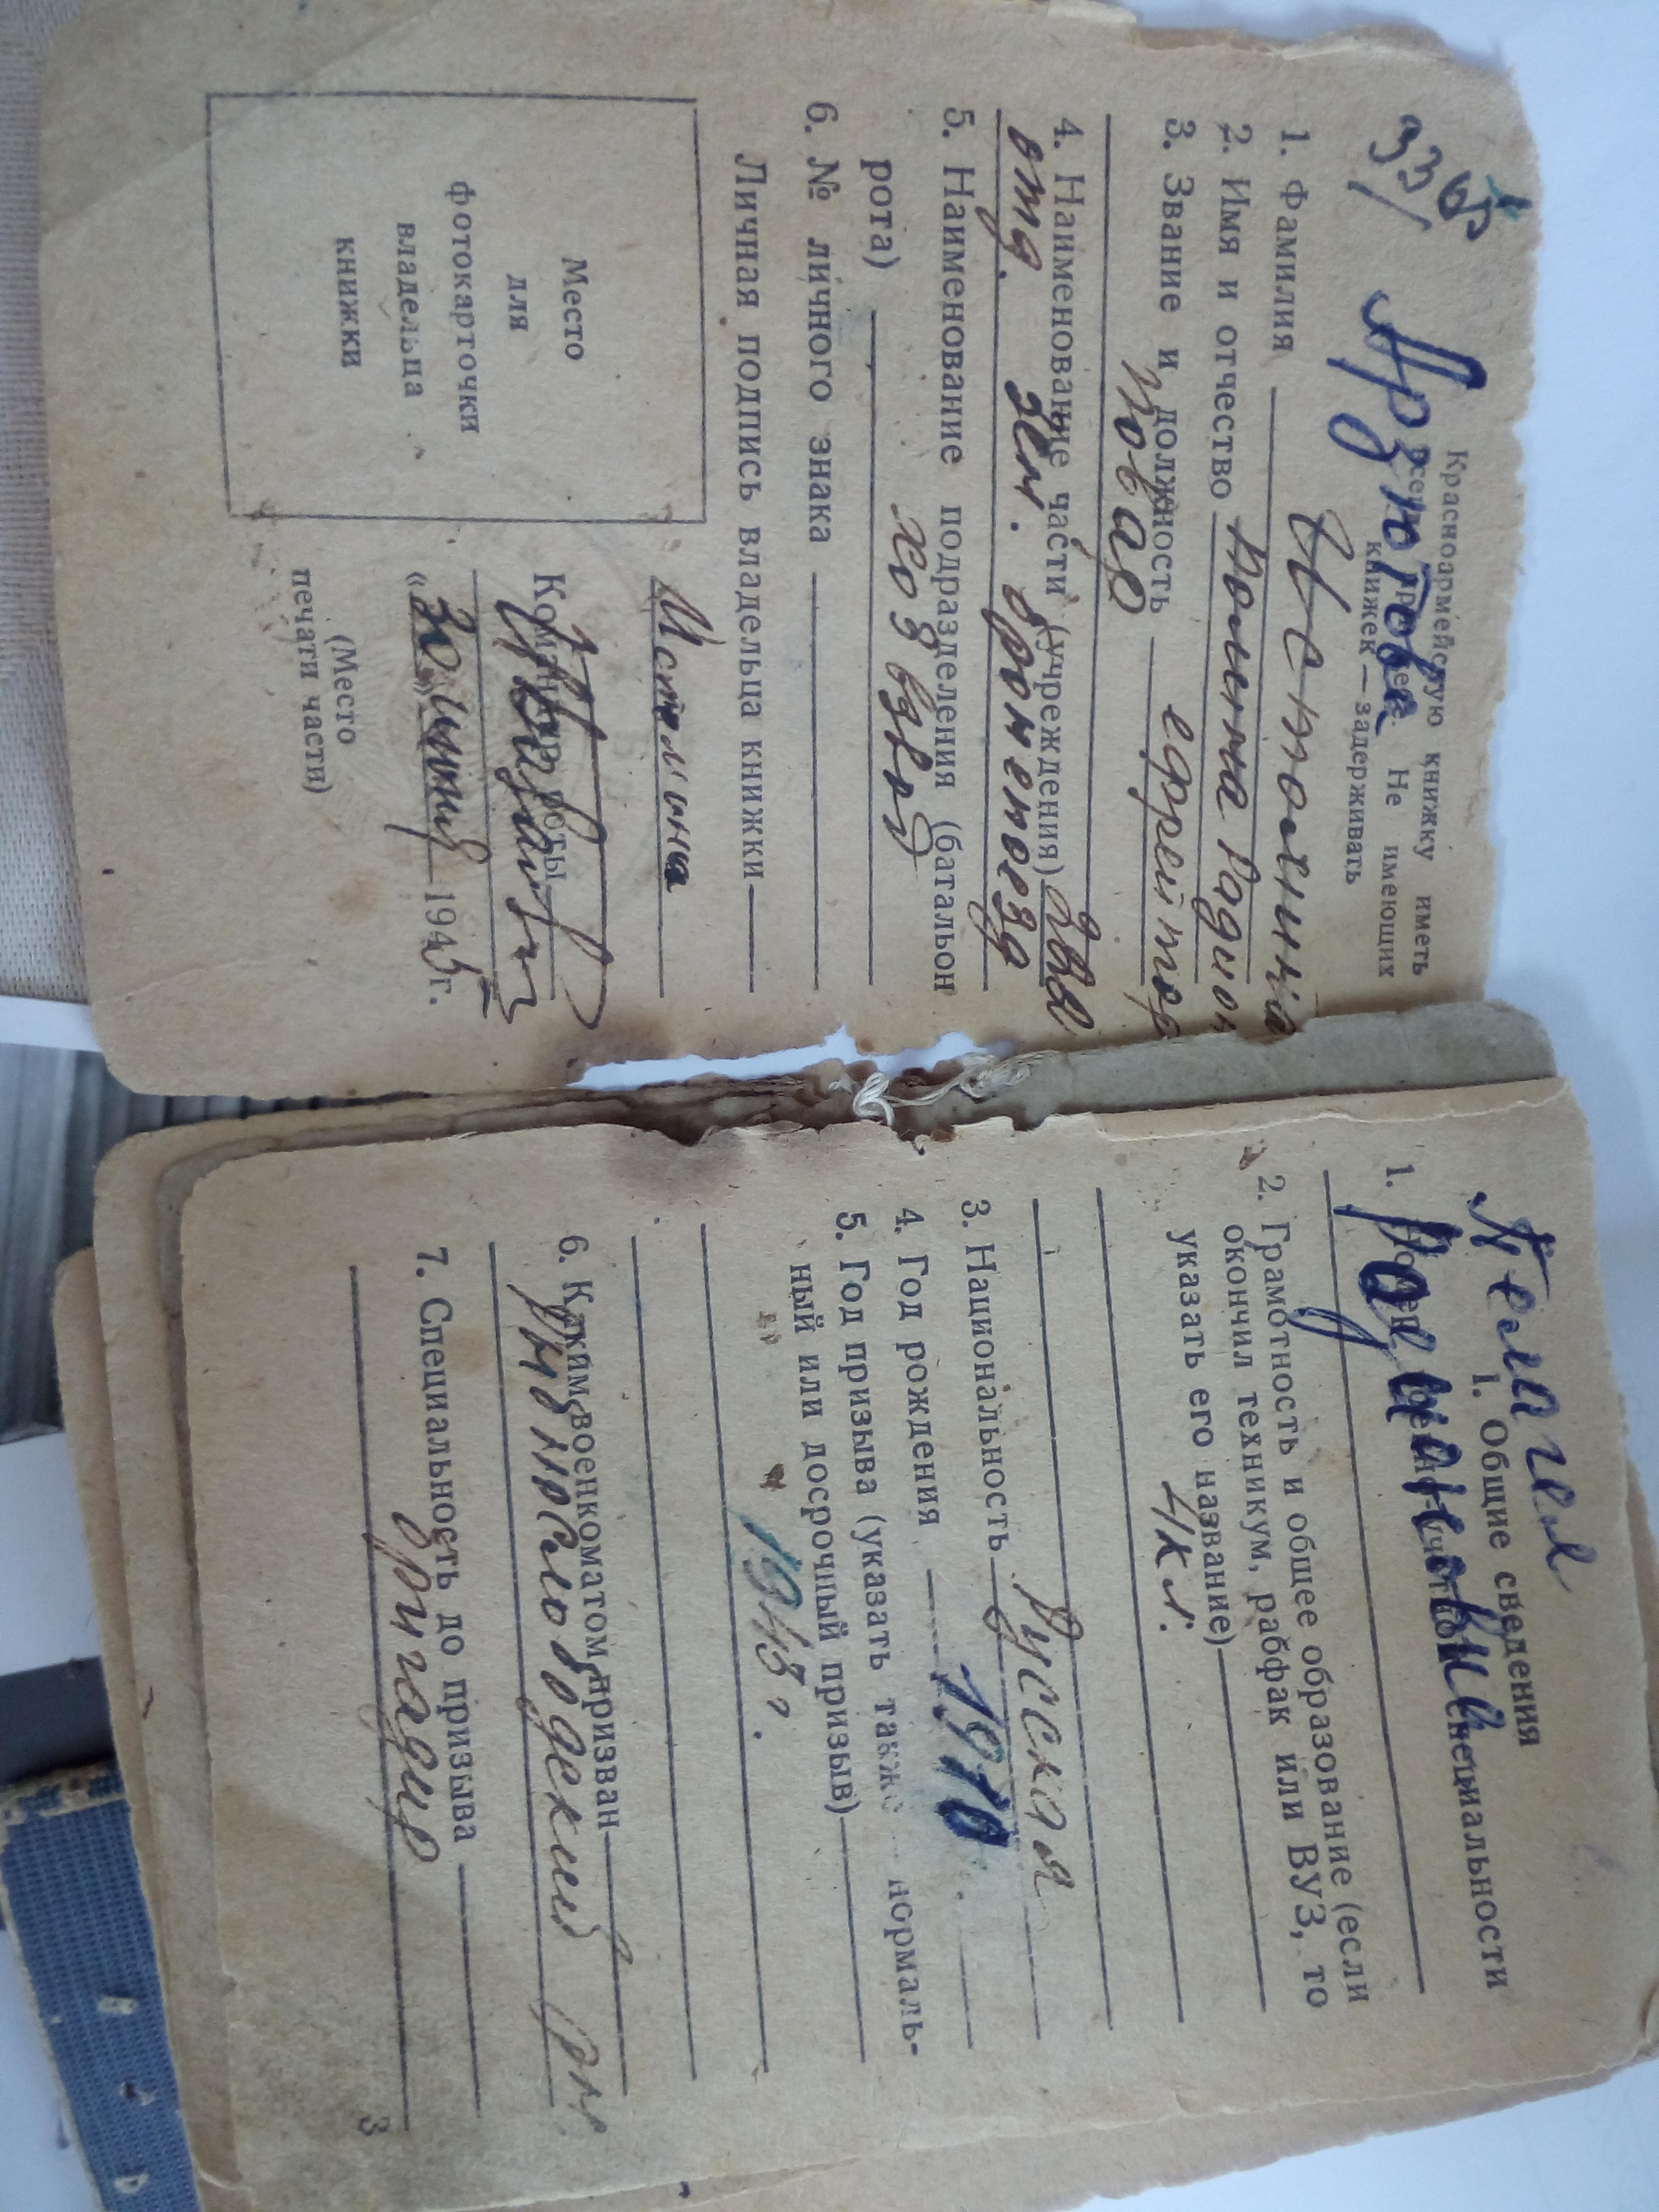 33
Арютова
Красноармейскую книжку иметь
всегда при себе. Не имеющих
книжек — задерживать
1. Фамилия
Истомина
2. Имя и отчество
3. Звание и должность ефрейтор
повар
4. Наименование части (учреждения)
отд. зен. бронепоезд
5. Наименование подразделения (батальон
рота) хоз взвод
6. № личного знака
Личная подпись владельца книжки
Истомина
Место
для
фотокарточки
владельца
книжки
Командир роты
«30» 1945 г.
(Место
печати части)
Пелагея
1. Общие сведения
Родионовна
1. специальности
2. Грамотность и общее образование (если
окончил техникум, рабфак или ВУЗ, то
указать его название)
4 кл.
3. Национальность Русская
4. Год рождения 1910
5. Год призыва (указать также нормаль-
ный или досрочный призыв)
1943 г.
6. Каким военкоматом призван
7. Специальность до призыва
бригадир
3